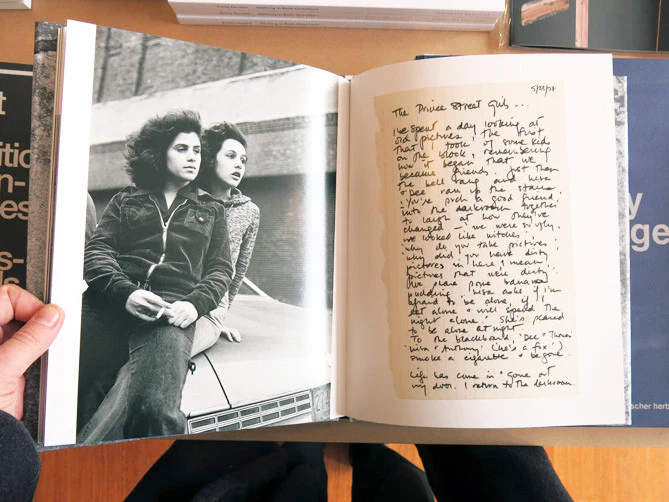 The Prince Street Girls...
I've spent a day looking at
old pictures, the first
that I took of some kids
on the block, remembering
how it began that we
became friends. Just then
the bell rang and here
Dee ran up the stairs
'You're such a good friend,'
into the darkroom together
to laugh at how they've
changed — 'we were so ugly,
we looked like witches.'
'why do you take pictures,'
'why did you have dirty
pictures in here, I mean
pictures that were dirty.'
We share some banana
pudding. Lisa asks if I'm
afraid to be alone, if I
eat alone & will spend the
night alone. She's scared
to be alone at night.
To the blackboard, 'Dee +
Lisa & Anthony (he's a fox)'
smoke a cigarette & begone.
Life has come in & gone at
my door. I return to the darkroom.
t
itio
n-
es
s-
y
ge
scher herb